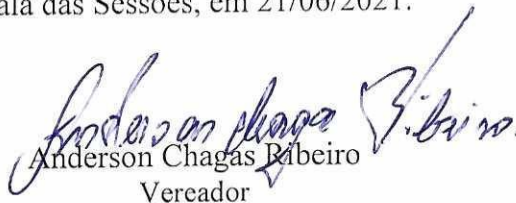 ala das Sessões, em 21/06/2021.
Anderson Chagas Ribeiro
Anderson Chagas Ribeiro
Vereador